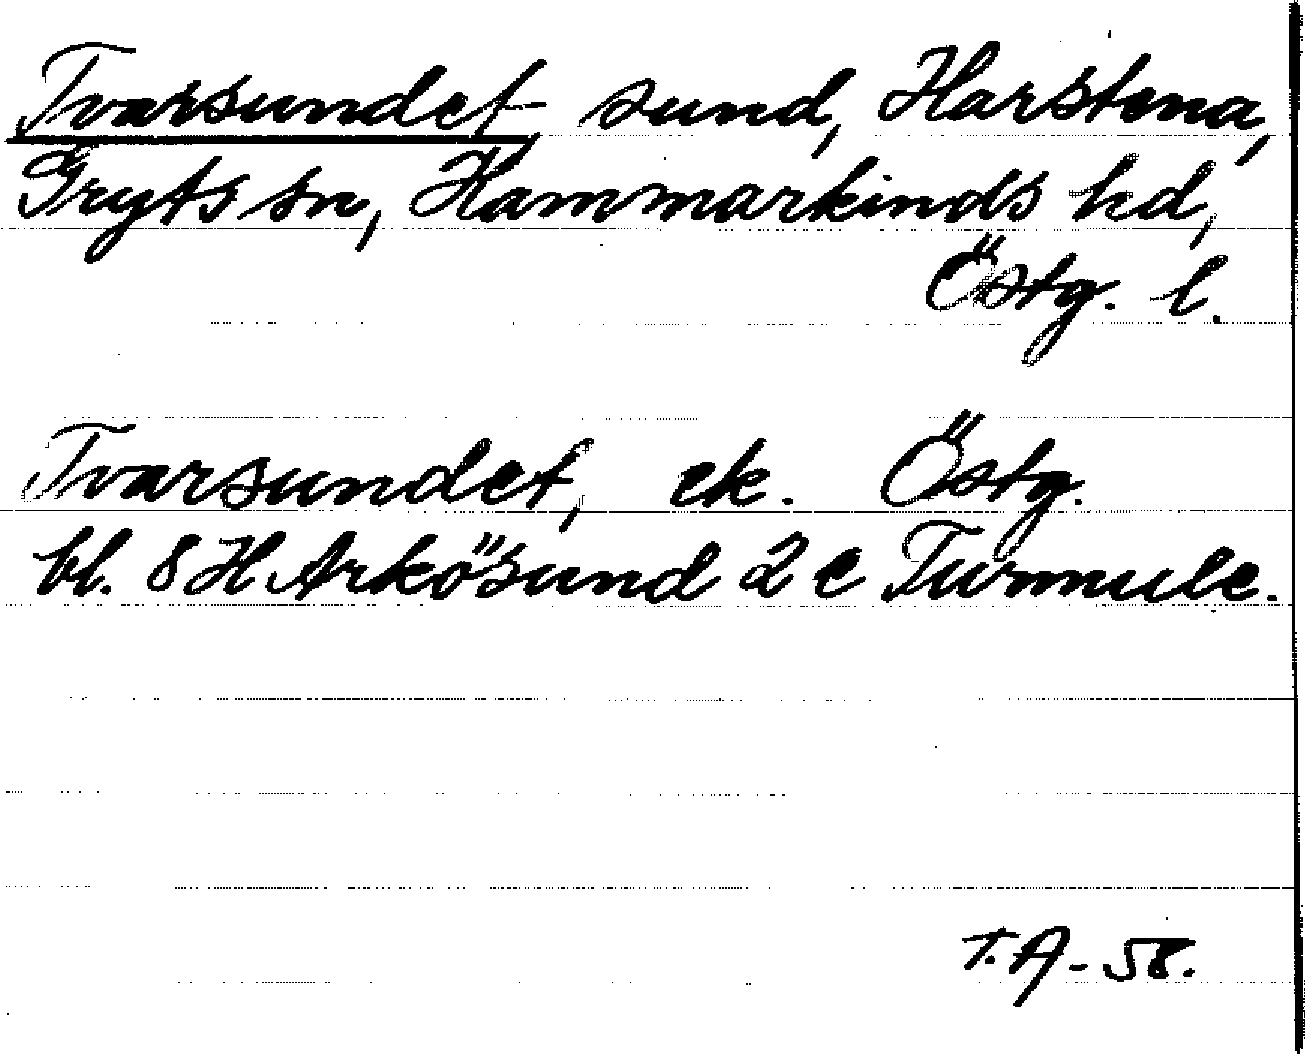 Tvarsundet sund, Harstena,
Gryts sn, Hammarkinds hd,
Östg. l.
Tvarsundet, ek. Östg.
bl. 8 H Arkösund 2 e Turmule.
T.A-58.